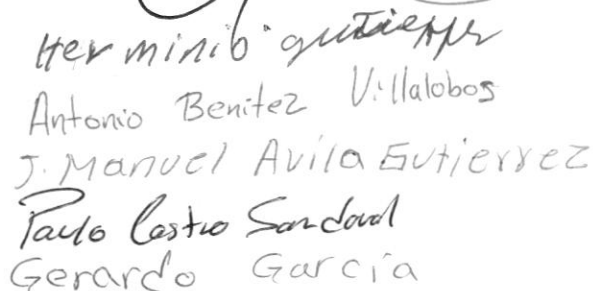 Herminio gutierrez
Antonio Benitez Villalobos
J. Manuel Avila Gutierrez
Paulo Castro Sandoval
Gerardo García